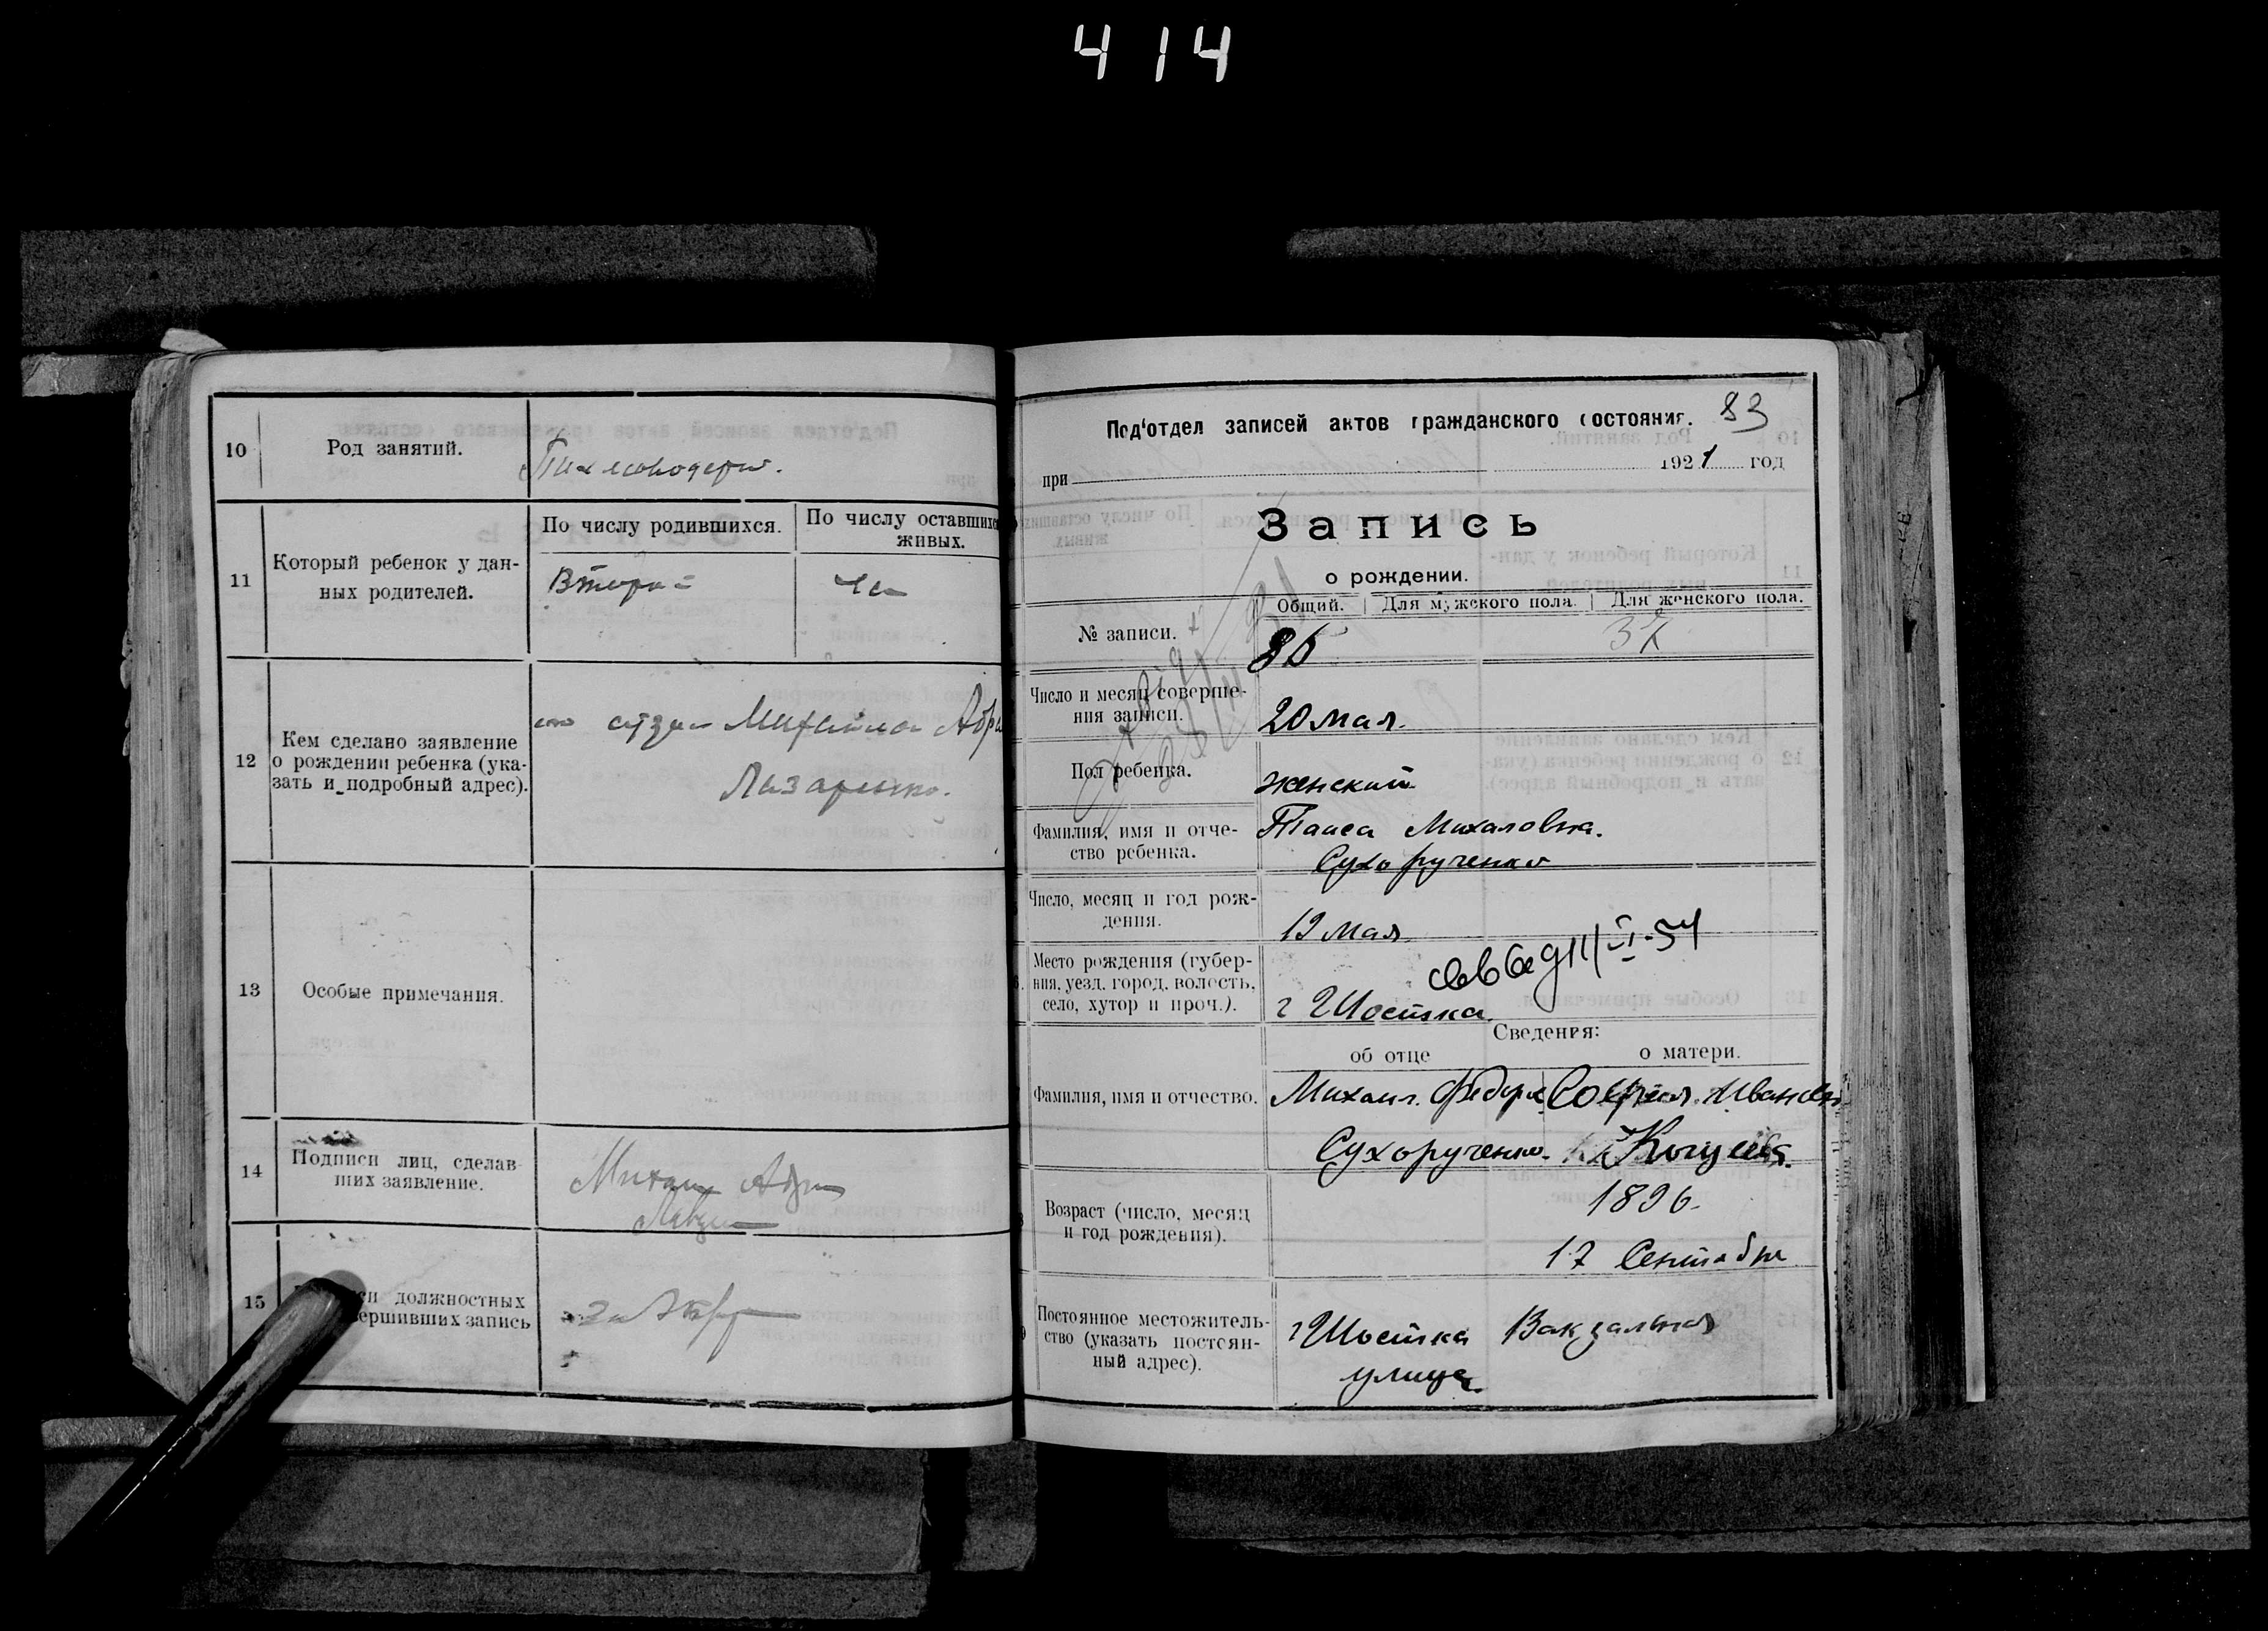 414
10
Род занятий.
11
Который ребенок у дан-
ных родителей.
По числу родившихся.
По числу оставшихс
живых.
Второй
12
Кем сделано заявление
о рождении ребенка (ука-
зать и подробный адрес).
отцом Михаилом Абра
Лазаренко.
13
Особые примечания.
14
Подписи лиц, сделав-
ших заявление.
Михаил
15
должностных
вершивших запись
Под‘отдел записей актов гражданского состояния.
83
при
1921 год
Запись
о рождении.
Общий.
Для мужского пола.
Для женского пола.
№ записи.
Число и месяц соверше-
ния записи.
20 мая.
Пол ребенка.
женский
Фамилия, имя и отче-
ство ребенка.
Таиса Михаловна.
Сухорученко
Число, месяц и год рож-
дения.
Мая.
Место рождения (губер-
ния, уезд, город, волость,
село, хутор и проч.).
г Шостка.
Сведения:
об отце
о матери.
Фамилия, имя и отчество.
Михаил Федоров
Сухорученко.
София Ивановн
Возраст (число, месяц
и год рождения).
1896.
17 Сентября
Постоянное местожитель-
ство (указать постоян-
ный адрес).
г Шостка Вакзальная
улица.